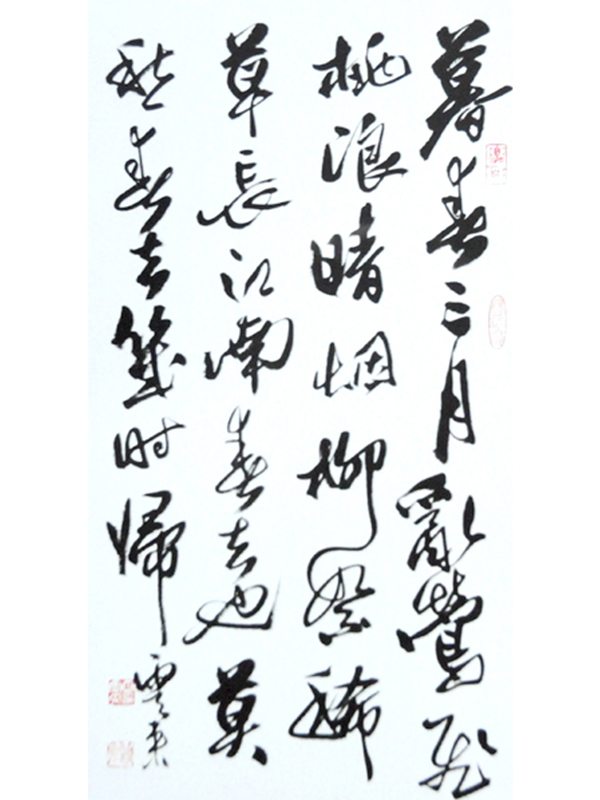 暮春三月亂鶯飛
桃浪晴烟柳絮稀
草長江南春去也莫
愁春去幾时歸
雲来